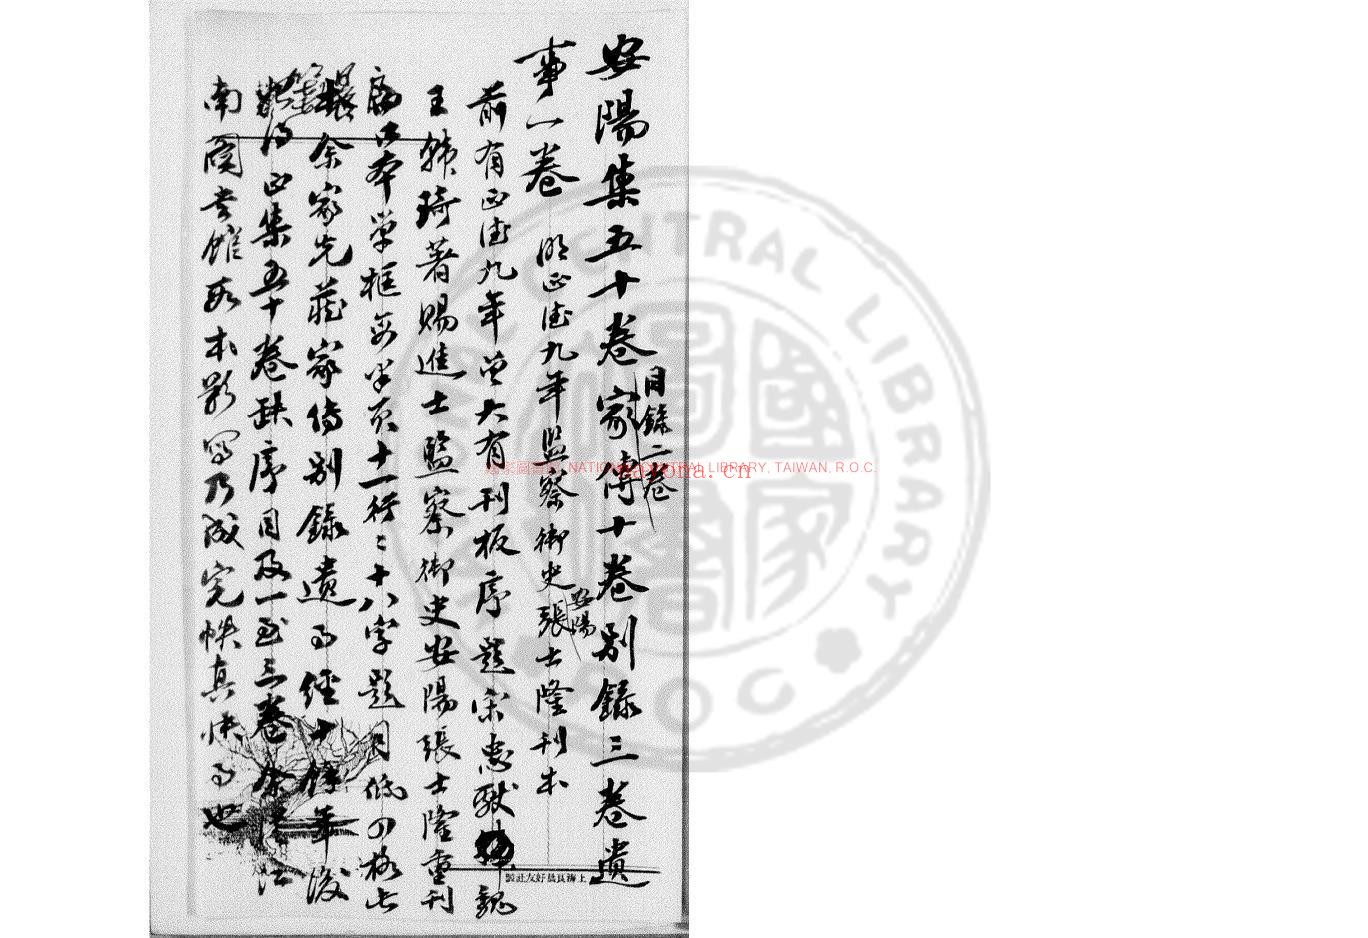 安陽集五十卷家傳十卷別錄三卷遺
目錄二卷
事一卷
明正德九年監察御史張士隆刊本
安陽
前有正德九年曾大有刊板序題宋忠獻韓魏
王韓琦著賜進士監察御史安陽張士隆重刊
本單框每半頁十一行二十八字題目低四格
余家先藏家傳別錄遺事經十餘年後
得此集五十卷缺序目及一至三卷余
南圖書館藏本影寫乃成完帙真快事也
上海良晨好友社製
NATIONAL CENTRAL LIBRARY
ROC
國家圖書館, NATIONAL CENTRAL LIBRARY, TAIWAN, R.O.C.